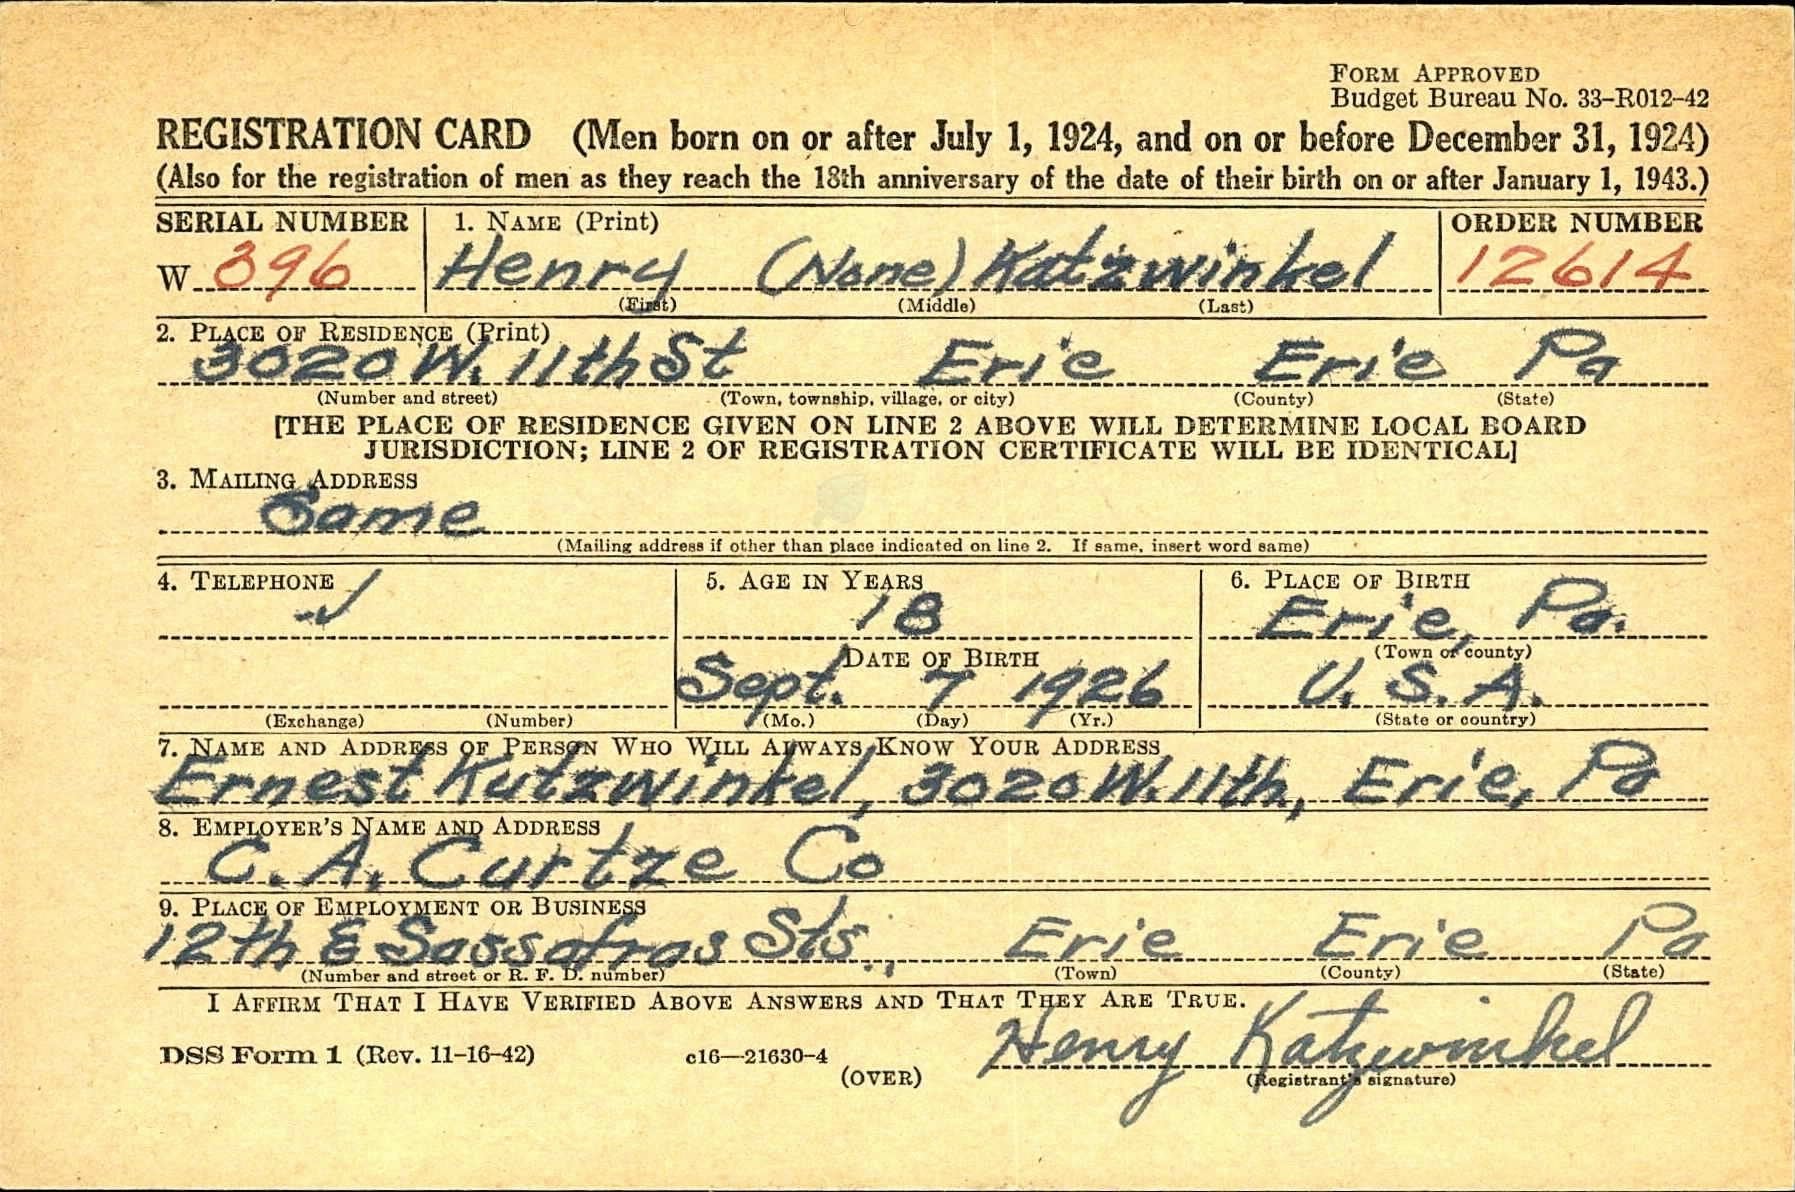 FORM APPROVED
Budget Bureau No. 33–R012–42
REGISTRATION CARD (Men born on or after July 1, 1924, and on or before December 31, 1924)
(Also for the registration of men as they reach the 18th anniversary of the date of their birth on or after January 1, 1943.)
SERIAL NUMBER 1. NAME (Print) ORDER NUMBER
W 396 Henry (None) Katzwinkel 12614
(First) (Middle) (Last)
2. PLACE OF RESIDENCE (Print)
3020 W. 11th St Erie Erie Pa
(Number and street) (Town, township, village, or city) (County) (State)
[THE PLACE OF RESIDENCE GIVEN ON LINE 2 ABOVE WILL DETERMINE LOCAL BOARD
JURISDICTION; LINE 2 OF REGISTRATION CERTIFICATE WILL BE IDENTICAL]
3. MAILING ADDRESS
Same
(Mailing address if other than place indicated on line 2. If same, insert word same)
4. TELEPHONE 5. AGE IN YEARS 6. PLACE OF BIRTH
✓ 18 Erie, Pa.
DATE OF BIRTH (Town or county)
Sept. 7 1926 U. S. A.
(Exchange) (Number) (Mo.) (Day) (Yr.) (State or country)
7. NAME AND ADDRESS OF PERSON WHO WILL ALWAYS KNOW YOUR ADDRESS
Ernest Kutzwinkel, 3020 W. 11th, Erie, Pa
8. EMPLOYER'S NAME AND ADDRESS
C. A. Curtze Co
9. PLACE OF EMPLOYMENT OR BUSINESS
12th & Sassafras Sts., Erie Erie Pa
(Number and street or R. F. D. number) (Town) (County) (State)
I AFFIRM THAT I HAVE VERIFIED ABOVE ANSWERS AND THAT THEY ARE TRUE.
Henry Katzwinkel
DSS Form 1 (Rev. 11-16-42) c16—21630-4
(OVER) (Registrant's signature)